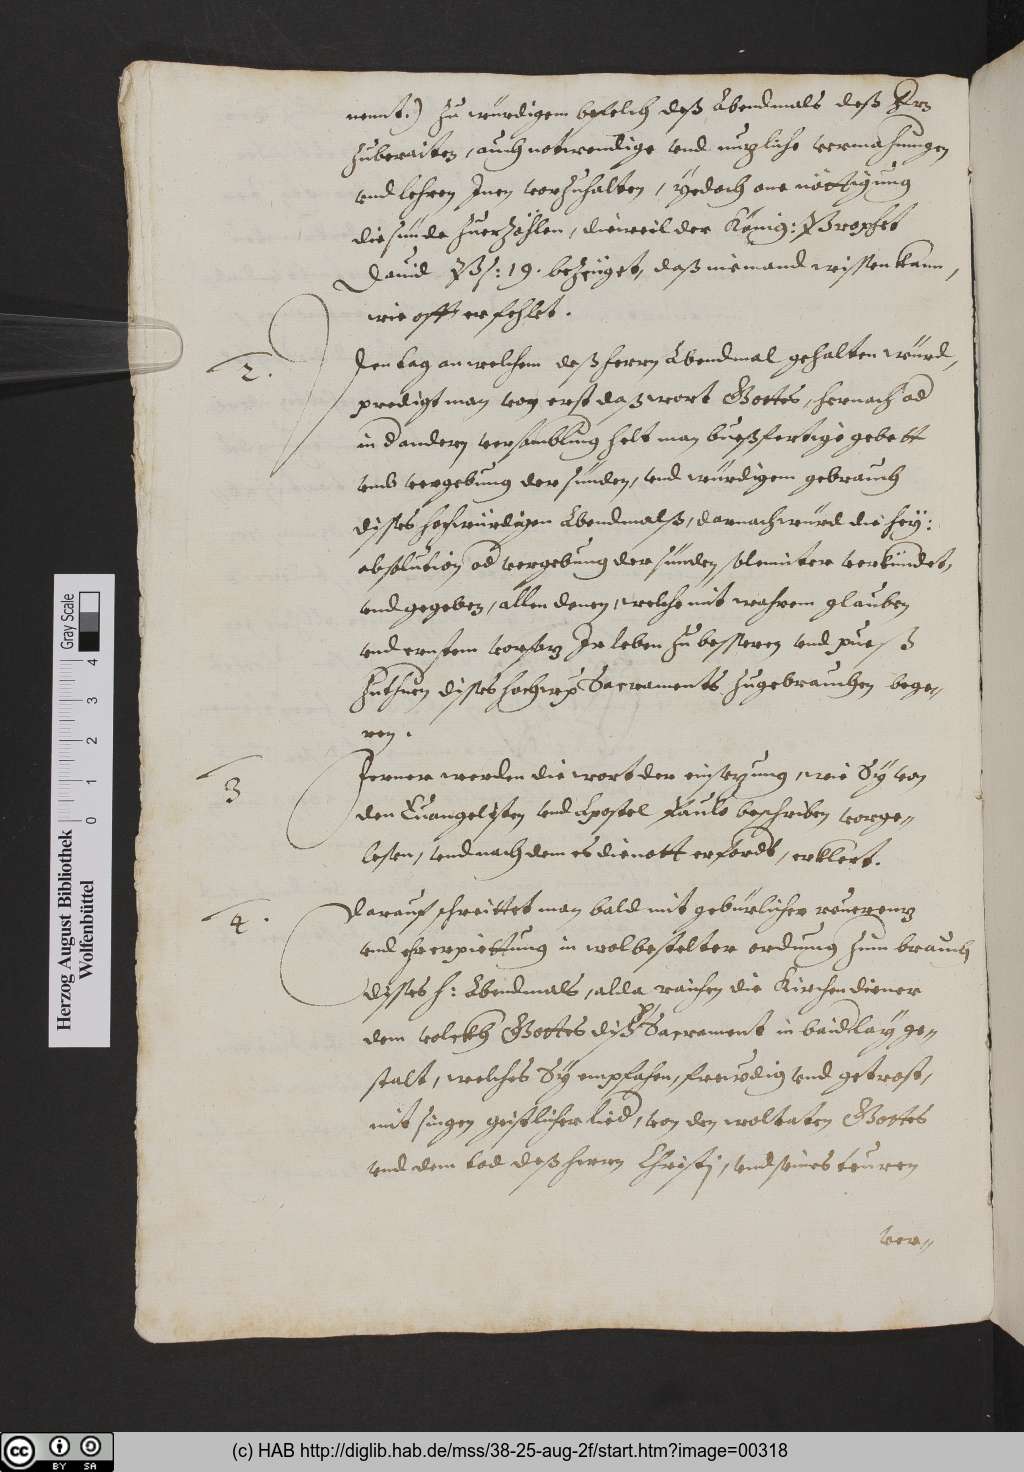 nent.) zu würdigem befelch deß Abendmals deß
zuberaiten, auch notwendige vnd nuzliche vermahnungen
vnd lehren Jnen vorzuhalten, yedoch one nöttigung
die sünde zuerzöhlen, dieweil der Königː Prophet
Dauid Ps: 19. bezeüget, daß niemand wissen kann,
wie offt er fehlet.
2. Den tag an welchem deß herrn Abendmal gehalten würd,
predigt man von erst daz wort Gottes, hernach od
in d andern versamblung helt man bueßfertige gebett
vmb vergebung der sünden, vnd würdigem gebrauch
dises hochwürdigen Abendmalß, darnach würd die hey:
absolution od vergebung der sünden solemniter verkündet,
vnd gegeben, allen denen, welche mit wahrem glauben
vnd ernstem vorsaz Jr leben zu besseren vnd pueß
zuthuen dises hochw Sacraments zugebrauchen bege=
ren.
3 Ferner werden die wort der einsezung, wie Sy von
den Euangelisten vnd Apostel Paulo beschriben vorge=
lesen, vnd nach dem es die nott erfordt, erklert.
4. Darauf schreittet man bald mit gebürlicher reuerenz
vnd ehrerpiettung in wolbestelter ordnung zum brauch
dises h: Abendmals, alda raichen die Kirchendiener
dem volckh Gottes diß Sacrament in baiderlay ge=
stalt, welches Sy empfahen, freudig vnd getrost,
mit singen geistlicher lied, von den woltaten Gottes
vnd dem tod deß herrn Christj, vnd seines teuren
ver=
Herzog August Bibliothek
Wolfenbüttel
0 1 2 3 4
Gray Scale
cc BY SA
(c) HAB http://diglib.hab.de/mss/38-25-aug-2f/start.htm?image=00318